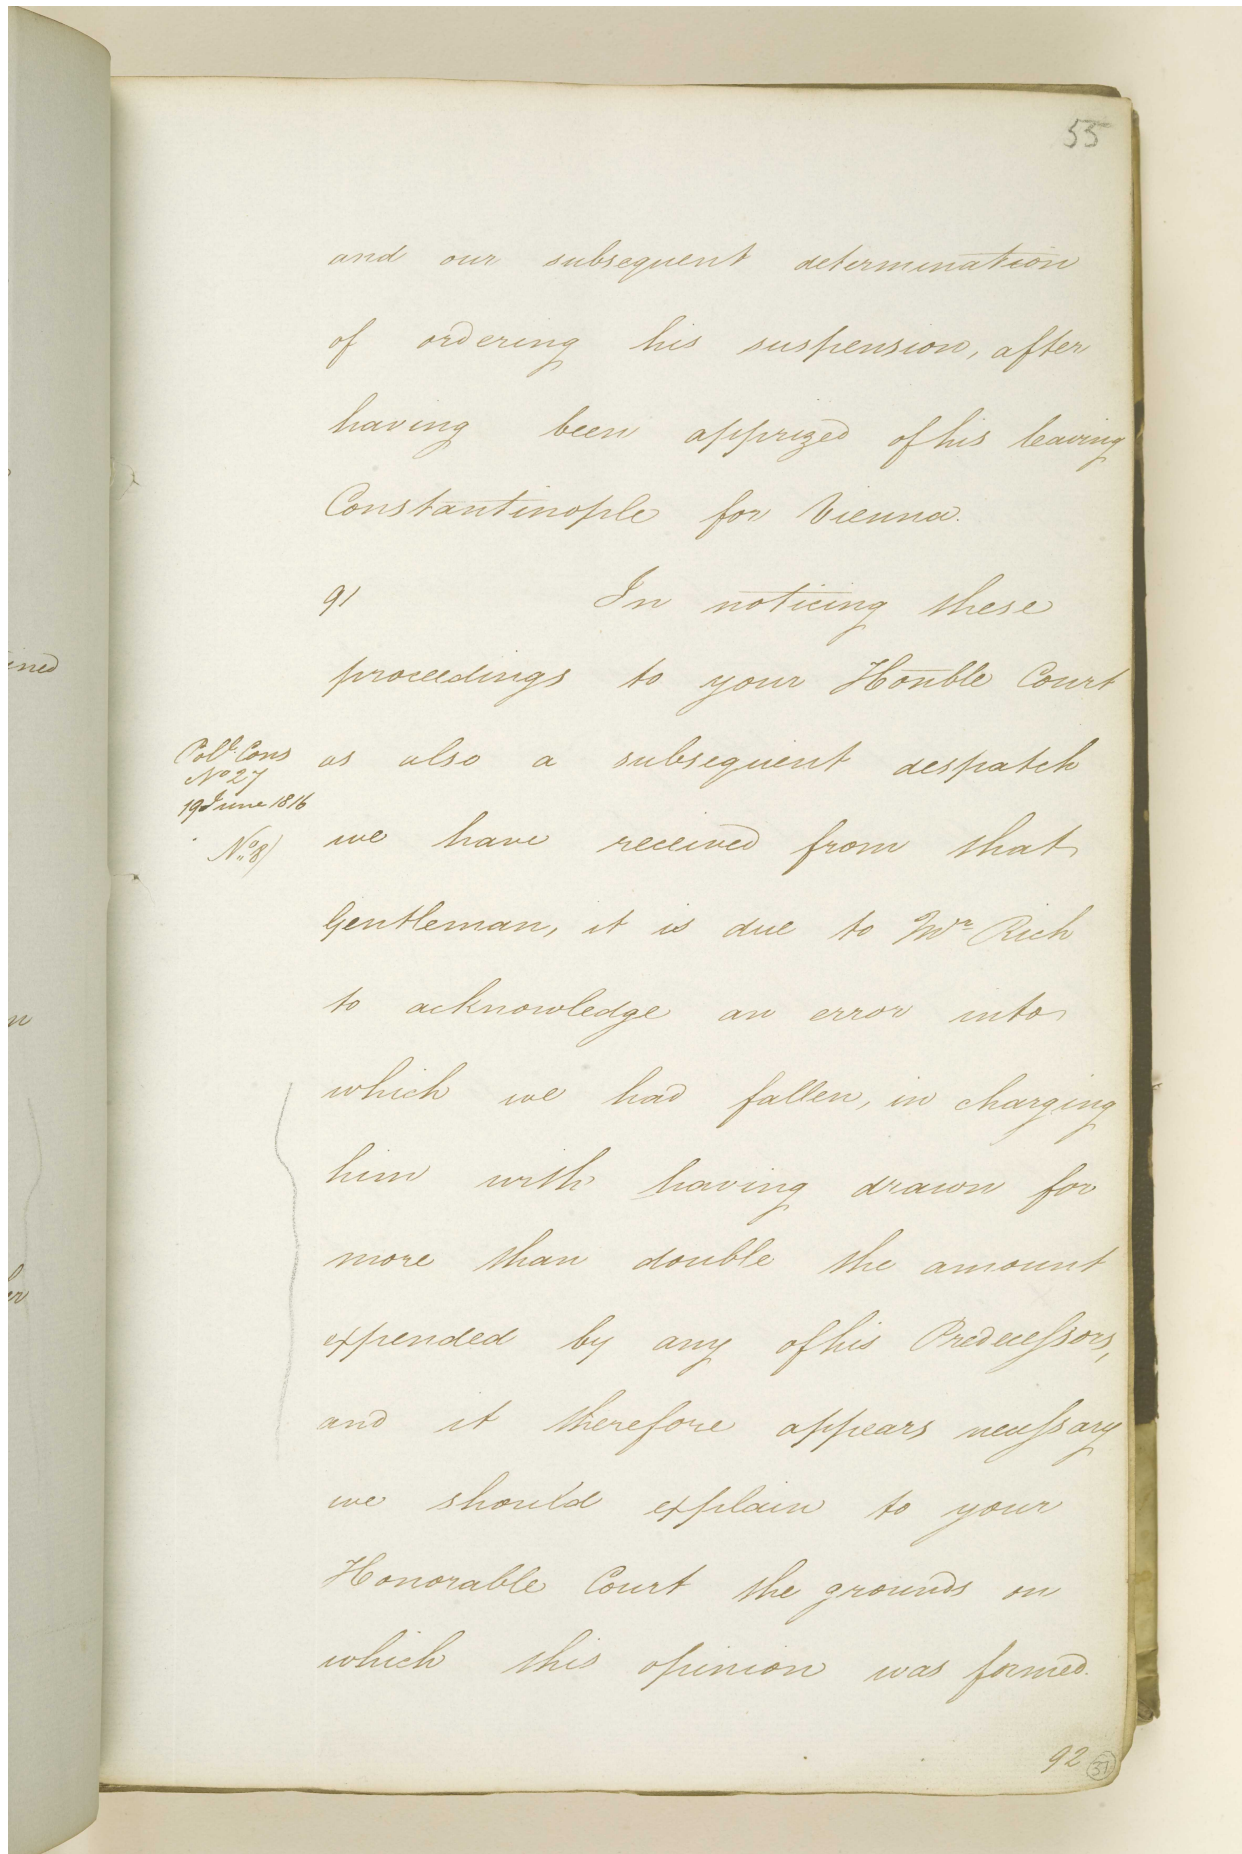 55
and our subsequent determination
of ordering his suspension, after
having been apprized of his leaving
Constantinople for Vienna.
91 In noticing these
proceedings to your Honble Court
Poll. Cons
No 27
19 June 1816
No. 8)
as also a subsequent despatch
we have received from that
Gentleman, it is due to Mr Rich
to acknowledge an error into
which we had fallen, in charging
him with having drawn for
more than double the amount
expended by any of his Predecessors,
and it therefore appears necessary
we should explain to your
Honorable Court the grounds on
which this opinion was formed.
92